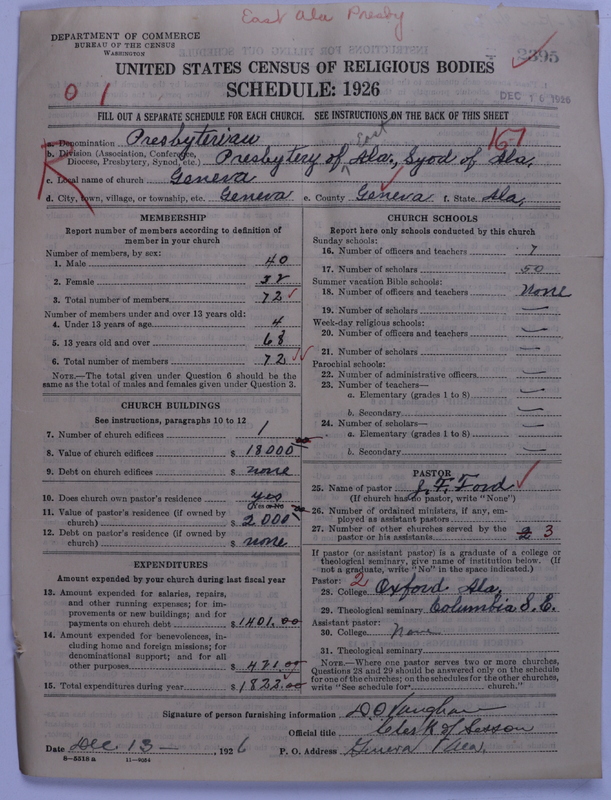 East Ala Presby
DEPARTMENT OF COMMERCE
BUREAU OF THE CENSUS
WASHINGTON
2395
UNITED STATES CENSUS OF RELIGIOUS BODIES
SCHEDULE: 1926
DEC 16 1926
0 1
FILL OUT A SEPARATE SCHEDULE FOR EACH CHURCH. SEE INSTRUCTIONS ON THE BACK OF THIS SHEET
a. Denomination Presbyterian
b. Division (Association, Conference, Diocese, Presbytery, Synod, etc.) Presbytery of East Ala., Syod of Ala.
167
c. Local name of church Geneva
d. City, town, village, or township, etc. Geneva e. County Geneva f. State Ala.
MEMBERSHIP
Report number of members according to definition of
member in your church
Number of members, by sex:
1. Male 40
2. Female 32
3. Total number of members 72
Number of members under and over 13 years old:
4. Under 13 years of age 4
5. 13 years old and over 68
6. Total number of members 72
NOTE.—The total given under Question 6 should be the
same as the total of males and females given under Question 3.
CHURCH BUILDINGS
See instructions, paragraphs 10 to 12
7. Number of church edifices 1
8. Value of church edifices $ 18000
9. Debt on church edifices $ none
10. Does church own pastor's residence yes
(Yes or No)
11. Value of pastor's residence (if owned by
church) $ 2000
12. Debt on pastor's residence (if owned by
church) $ none
EXPENDITURES
Amount expended by your church during last fiscal year
13. Amount expended for salaries, repairs,
and other running expenses; for im-
provements or new buildings; and for
payments on church debt $ 1401.00
14. Amount expended for benevolences, in-
cluding home and foreign missions; for
denominational support; and for all
other purposes $ 421.00
15. Total expenditures during year $ 1822.00
CHURCH SCHOOLS
Report here only schools conducted by this church
Sunday schools:
16. Number of officers and teachers 7
17. Number of scholars 50
Summer vacation Bible schools:
18. Number of officers and teachers None
19. Number of scholars —
Week-day religious schools:
20. Number of officers and teachers —
21. Number of scholars —
Parochial schools:
22. Number of administrative officers —
23. Number of teachers—
a. Elementary (grades 1 to 8) —
b. Secondary —
24. Number of scholars—
a. Elementary (grades 1 to 8) —
b. Secondary —
PASTOR
25. Name of pastor J. F. Ford
(If church has no pastor, write "None")
26. Number of ordained ministers, if any, em-
ployed as assistant pastors
27. Number of other churches served by the
pastor or his assistants 3
If pastor (or assistant pastor) is a graduate of a college or
theological seminary, give name of institution below. (If
not a graduate, write "No" in the space indicated.)
Pastor: 2
28. College Oxford Ala.
29. Theological seminary Columbia S. C.
Assistant pastor:
30. College None
31. Theological seminary
NOTE.—Where one pastor serves two or more churches,
Questions 28 and 29 should be answered only on the schedule
for one of the churches; on the schedules for the other churches,
write "See schedule for church."
Signature of person furnishing information D O Vaughan
Official title Clerk of Session
Date Dec. 13 — , 1926 P. O. Address Geneva Ala.
8-5518 a 11-9084